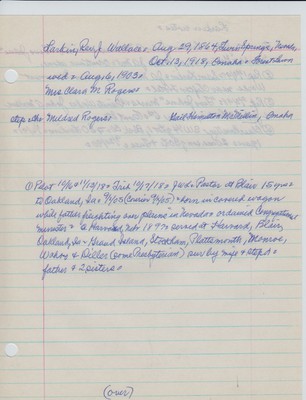 Larkin, Rev. J. Wallace Aug 29, 1864, Springs, Nevada
Oct 13, 1918, Omaha
wed Aug. 6, 1903
Mrs. Clara M. Rogers
step dtr Mildred Rogers Omaha
① Pilot 10/16 & 11/13/18 Trib 10/17/18 Jud. Pastor at Blair 15 yrs
to Oakland, Ia born in covered wagon
while father fighting in Nevada ordained Congregational
minister @ Harvard, Nebr 1897 served at Harvard, Blair,
Oakland, Ia Grand Island, Stockham, Plattsmouth, Monroe,
Wahoo & Diller (some Presbyterian) sur by wife & stepd
father & 2 sisters
(over)